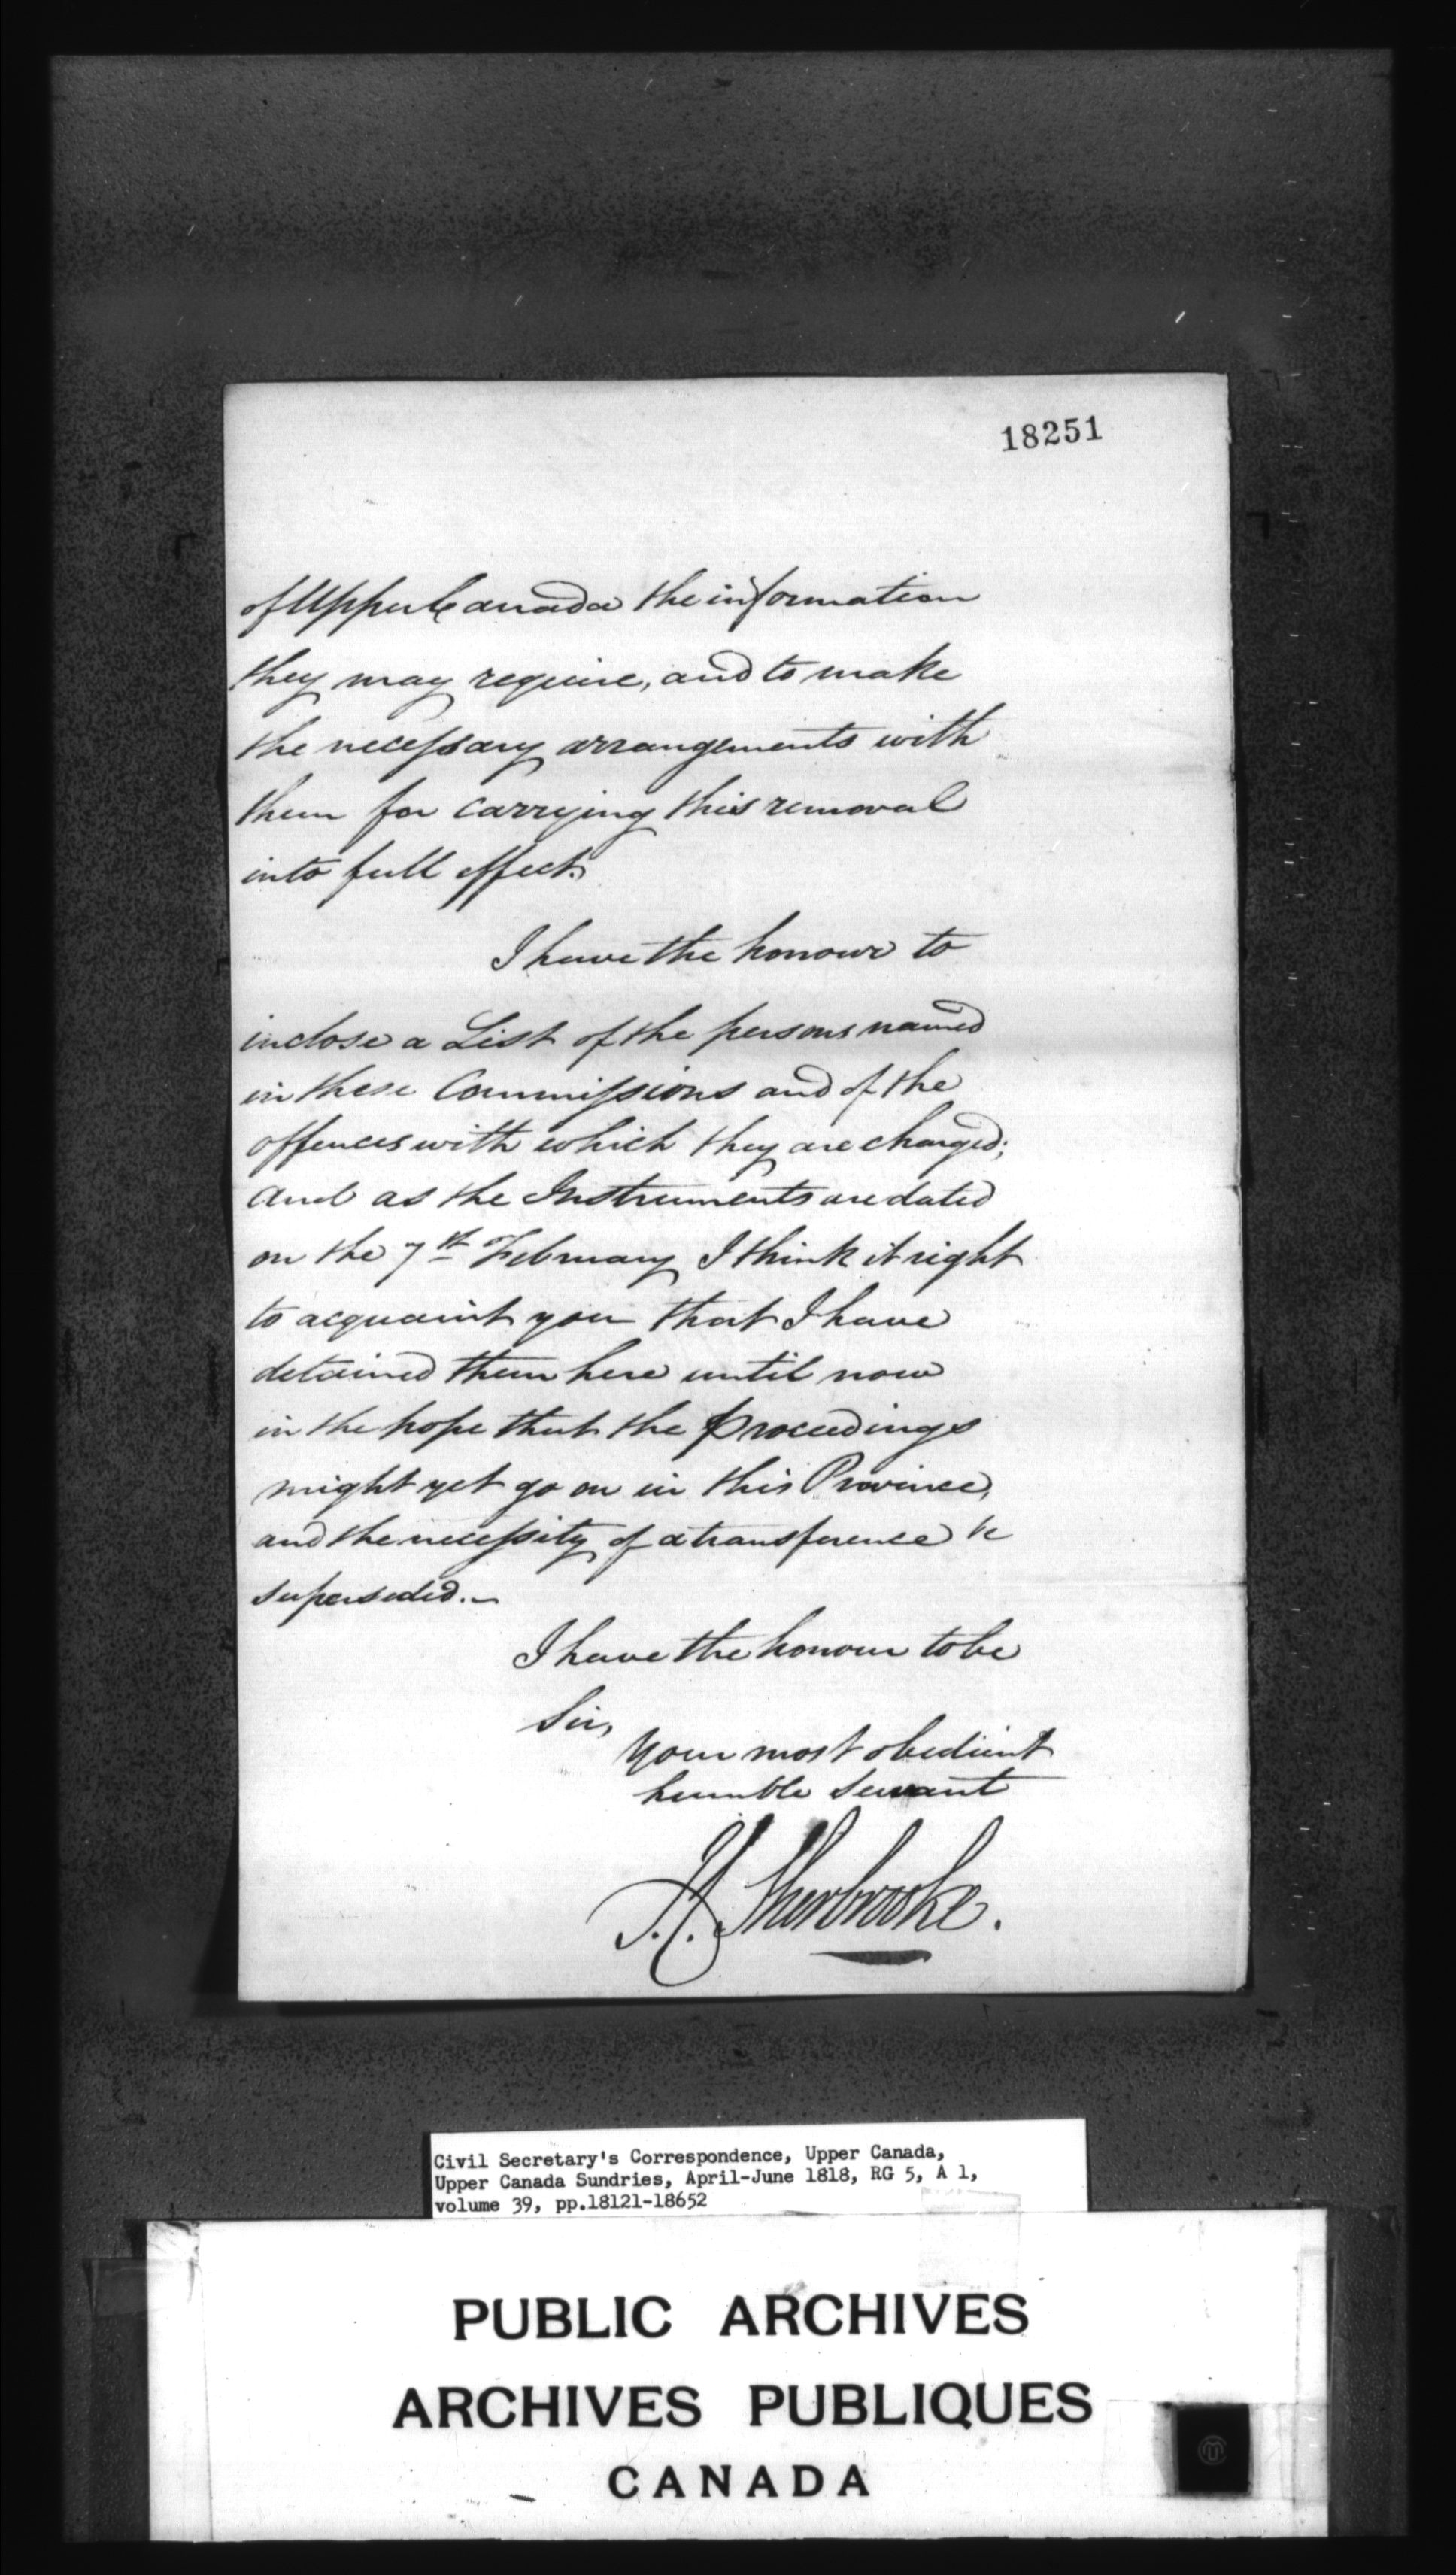 18251
of Upper Canada the information
they may require, and to make
the necessary arrangements with
them for carrying this removal
into full effect.
I have the honour to
inclose a List of the persons named
in these Commissions and of the
offences with which they are charged;
and as the Instruments are dated
on the 7th February I think it right
to acquaint you that I have
detained them here until now
in the hope that the proceedings
might yet go on in this Province,
and the necessity of a transference be
superseded.—
I have the honour to be
Sir,
Your most obedient
humble Servant
J.C. Sherbrooke.
Civil Secretary's Correspondence, Upper Canada,
Upper Canada Sundries, April-June 1818, RG 5, A 1,
volume 39, pp.18121-18652
PUBLIC ARCHIVES
ARCHIVES PUBLIQUES
CANADA